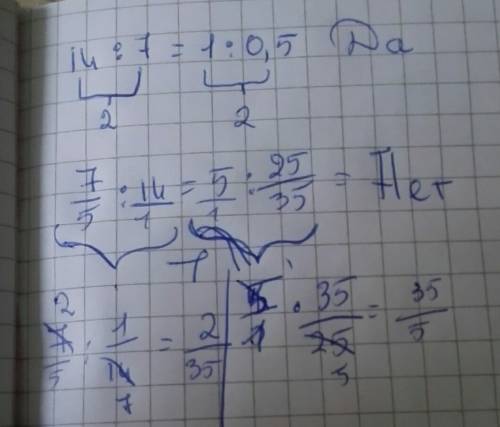 14 : 7 = 1 : 0,5 Да
2 2
7/5 : 14/1 = 5/1 : 25/35 = Нет
7/5 : 1/14 = 2/35 | 5/1 · 35/25 = 35/5